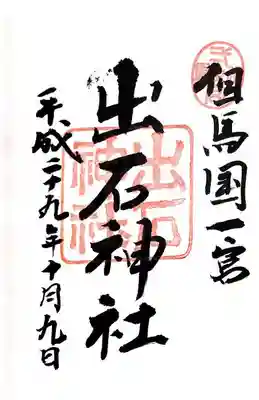 但馬国一宮
出石神社
出石神社
平成二十九年十月九日